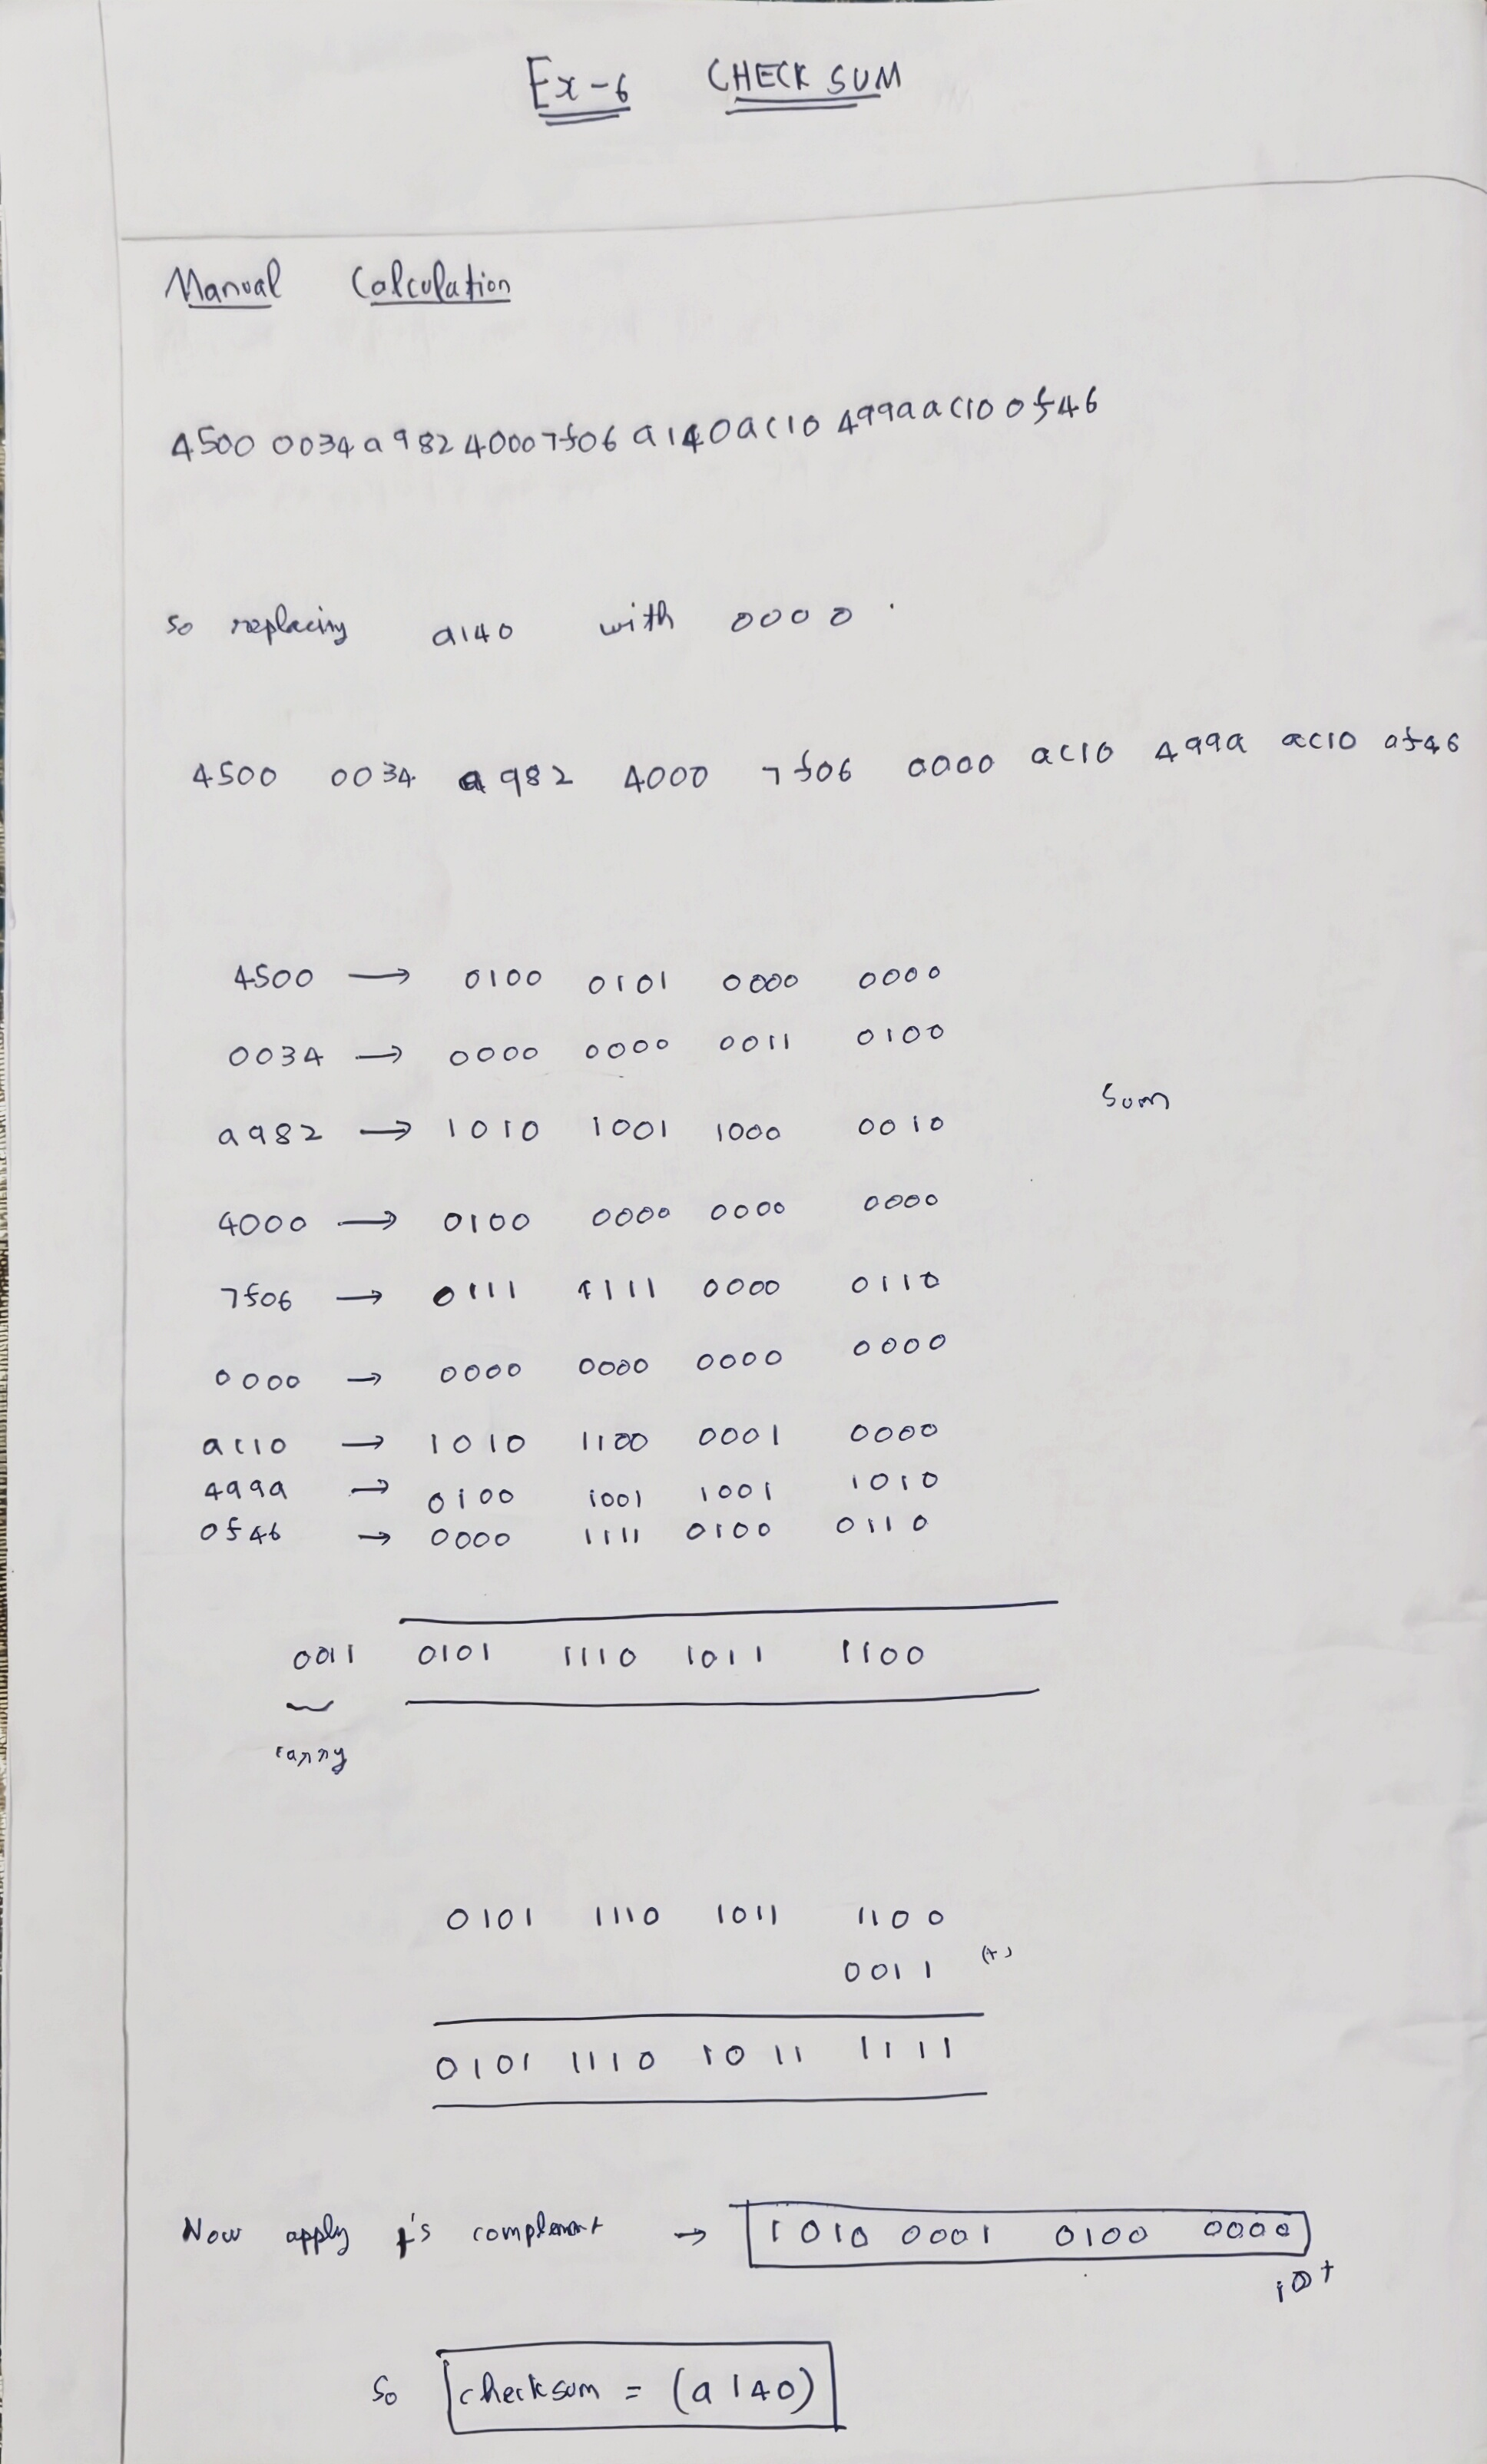 Ex-6 CHECK SUM
Manual Calculation
4500 0034 a982 4000 7f06 a140 ac10 499a ac10 0f46
So replacing a140 with 0000.
4500 0034 a982 4000 7f06 0000 ac10 499a ac10 0f46
4500 → 0100 0101 0000 0000
0034 → 0000 0000 0011 0100
Sum
a982 → 1010 1001 1000 0010
4000 → 0100 0000 0000 0000
7f06 → 0111 1111 0000 0110
0000 → 0000 0000 0000 0000
ac10 → 1010 1100 0001 0000
499a → 0100 1001 1001 1010
0f46 → 0000 1111 0100 0110
0011 0101 1110 1011 1100
carry
0101 1110 1011 1100
0011 (+)
0101 1110 1011 1111
Now apply 1's complement → 1010 0001 0100 0000
So checksum = (a140)